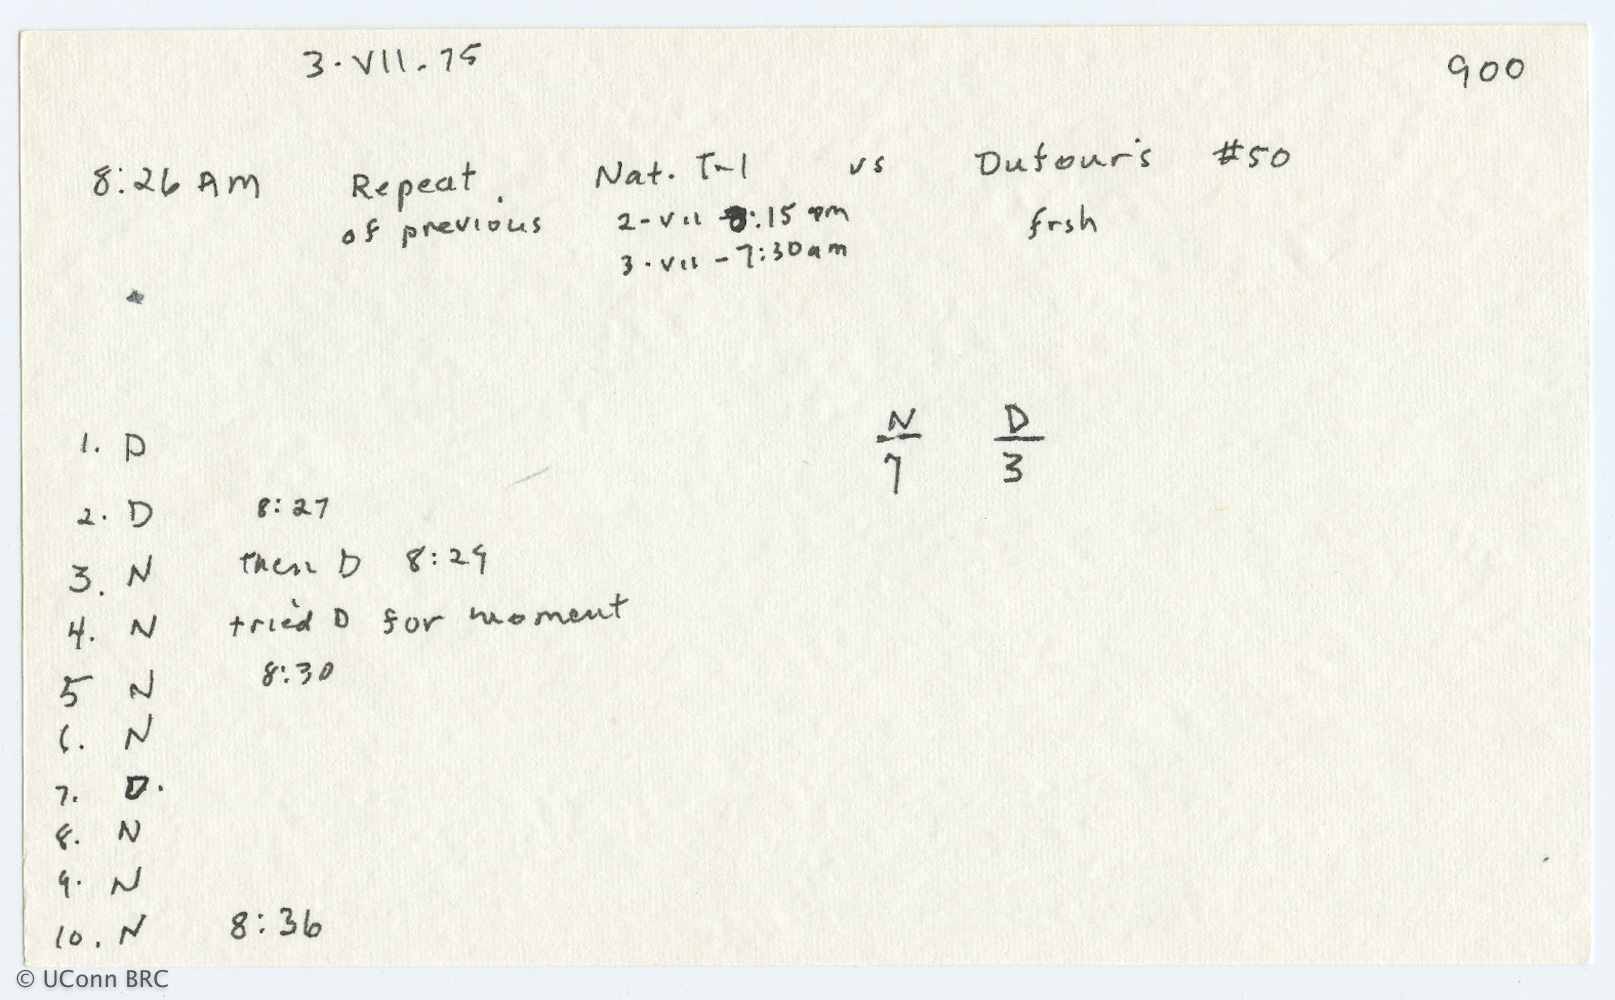 3·VII.75
900
8:26 AM Repeat Nat. T-1 vs Dufour's #50
of previous 2-VII 8:15 pm frsh
3·VII - 7:30am
N D
7 3
1. D
2. D 8:27
3. N then D 8:29
4. N tried D for moment
5 N 8:30
6. N
7. D.
8. N
9. N
10. N 8:36
© UConn BRC